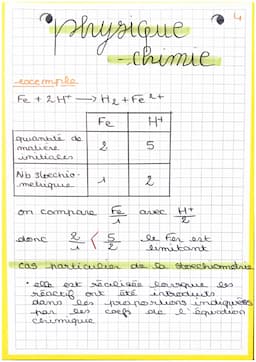 4
physique
-chimie
exemple
Fe + 2H⁺ → H₂ + Fe²⁺
Fe H⁺
quantité de matière initiales 2 5
Nb stoechio-métrique 1 2
on compare Fe/1 avec H⁺/2
donc 2/1 < 5/2 le Fer est limitant
cas particulier de la stoechiométrie
• elle est réalisée lorsque les
réactif ont été introduits
dans les proportions indiquées
par les coefs de l'équation
chimique